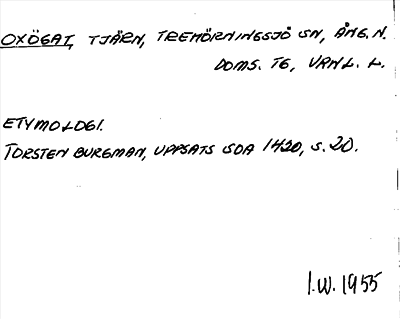 OXÖGAT, TJÄRN, TREHÖRNINGSJÖ SN, ÅNG. N.
DOMS. TG, VRML. L.
ETYMOLOGI.
TORSTEN BURGMAN, UPPSATS SOA 1420, S. 20.
I.W. 1955